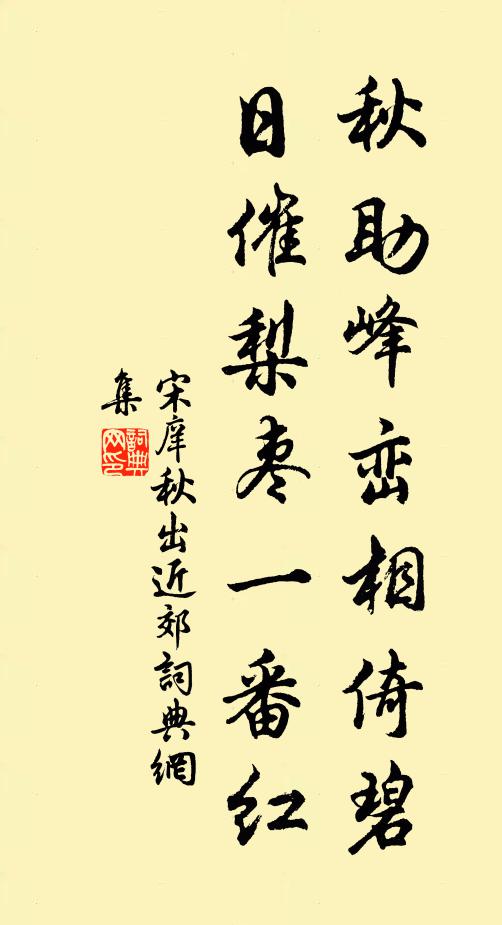 秋助峰峦相倚碧
日催梨枣一番红
宋庠秋出近郊詞典網
集
詞典網印